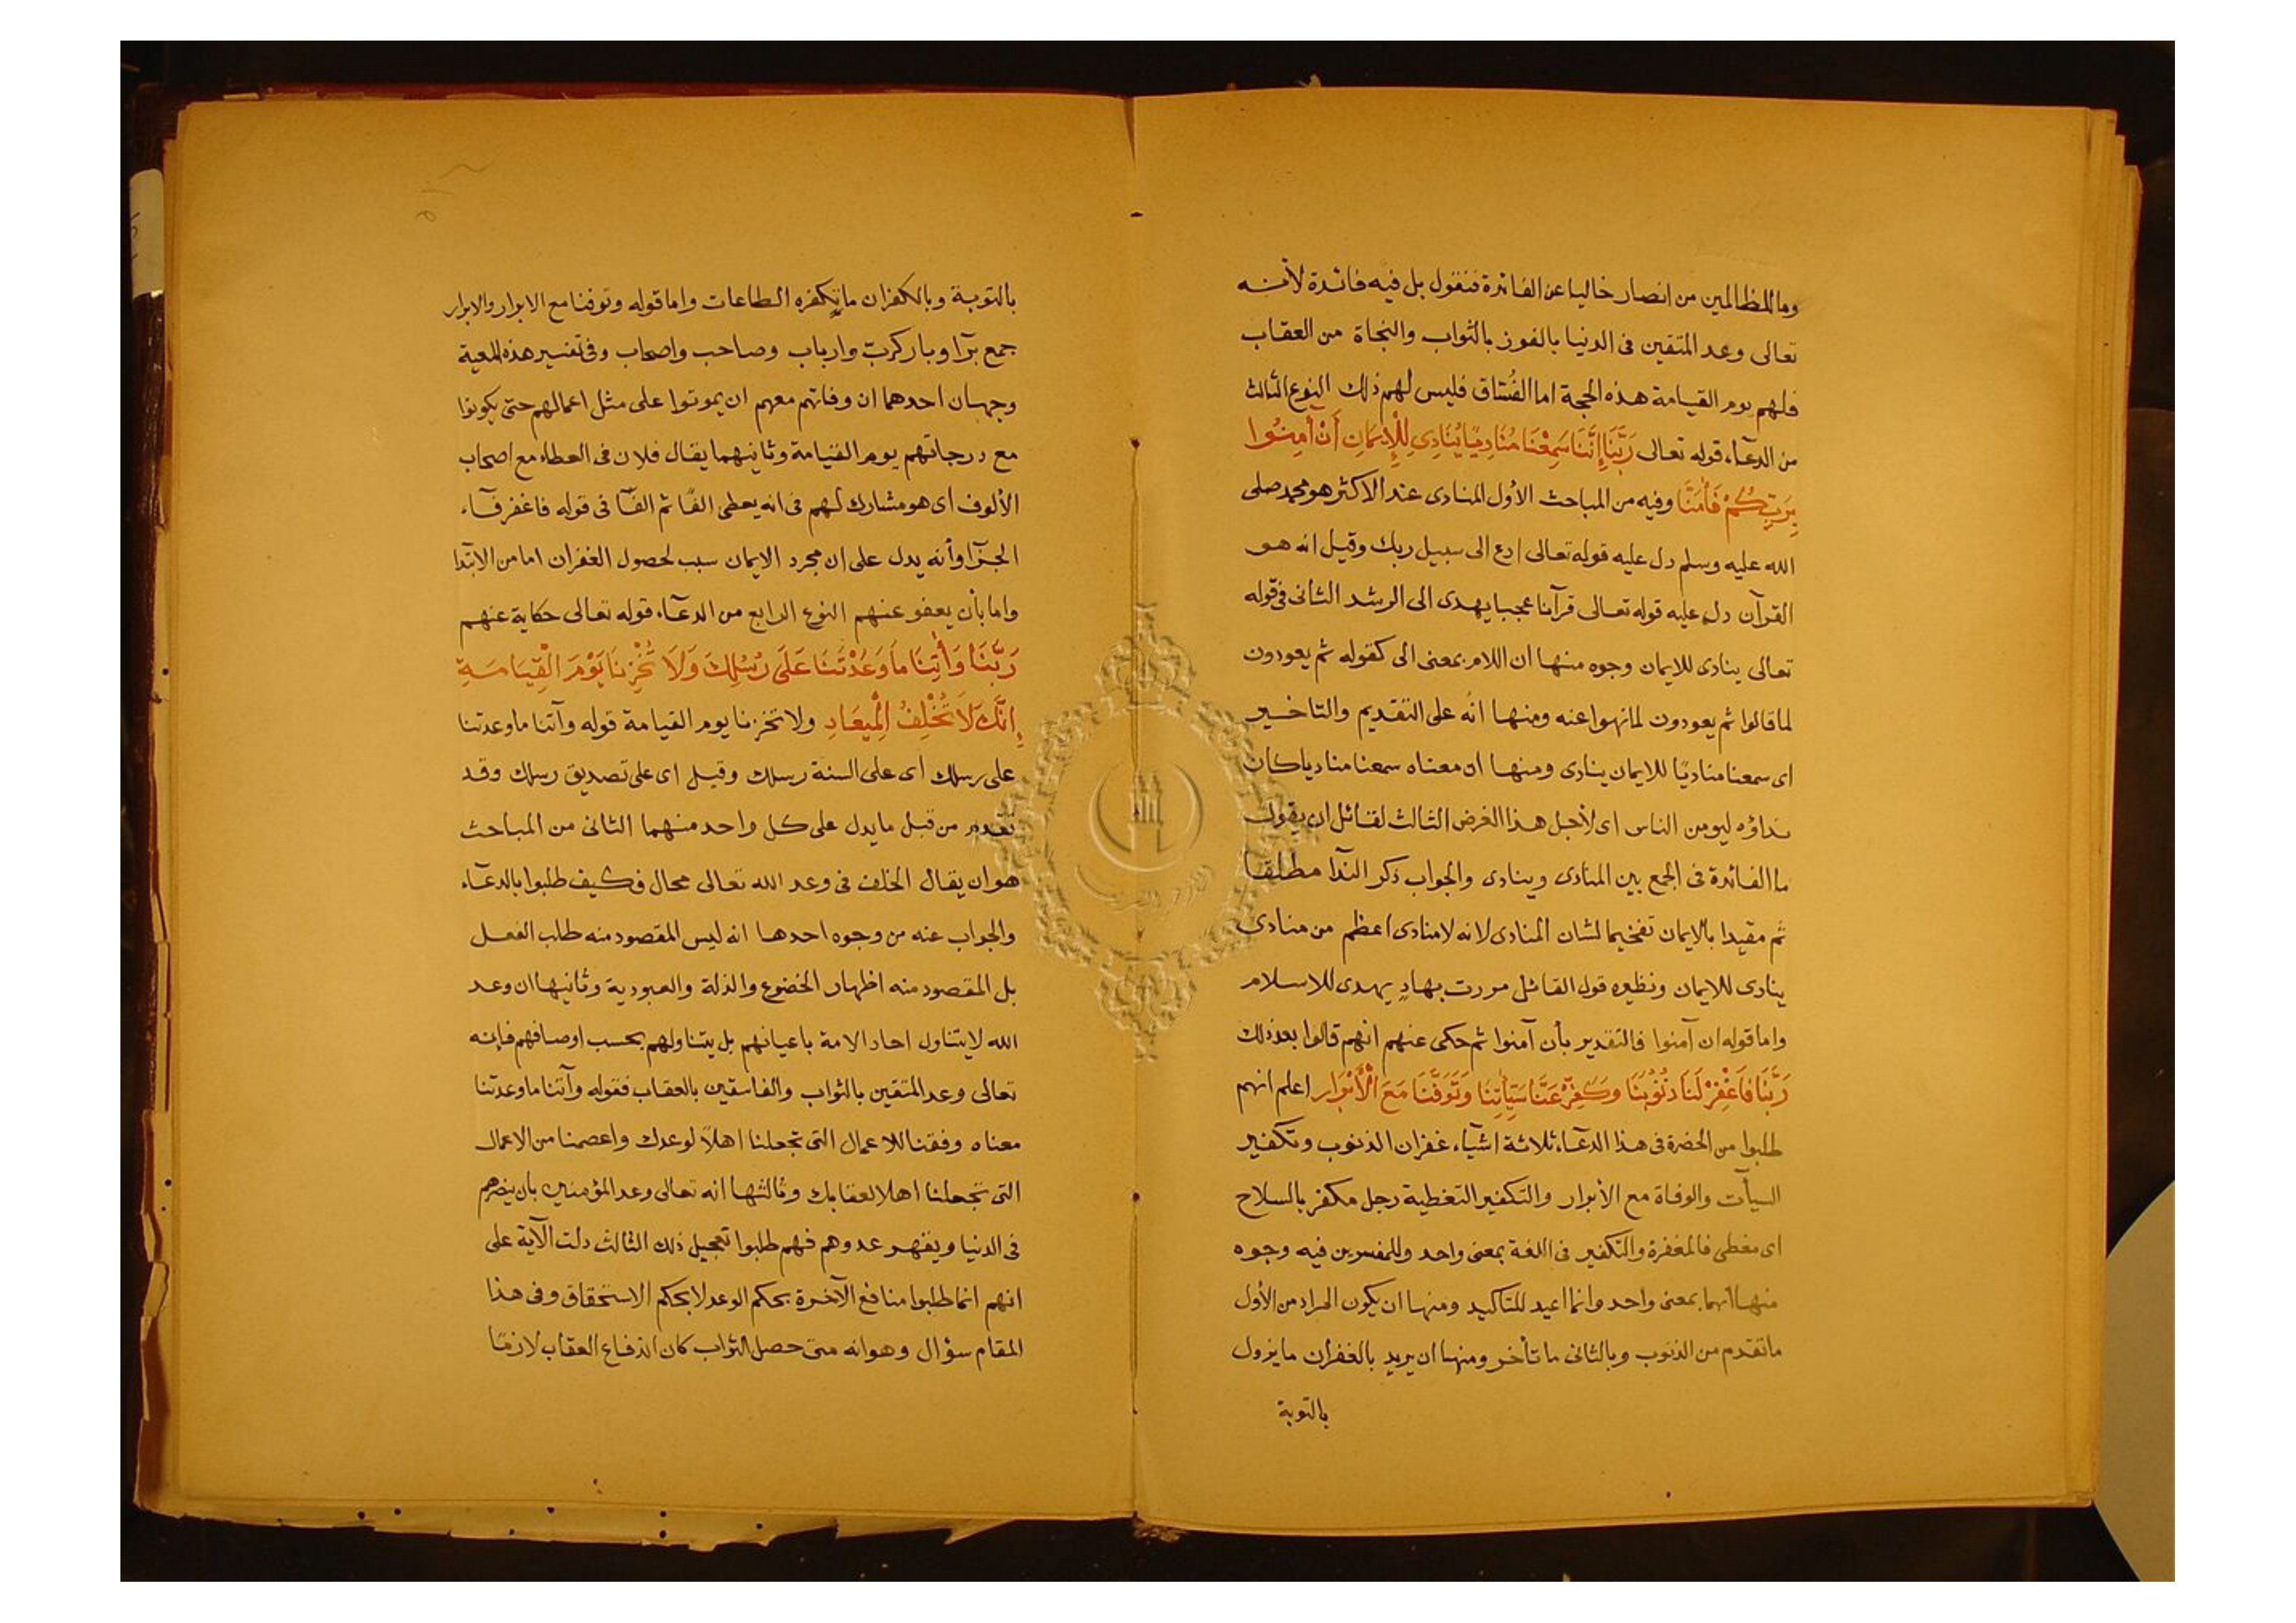 وما للظالمين من انصار خاليا عن الفائدة فنقول بل فيه فائدة لأنه
تعالى وعد المتقين فى الدنيا بالفوز بالثواب والنجاة من العقاب
فلهم يوم القيامة هذه الحجة اما الفُسّاق فليس لهم ذلك النوع الثالث
من الدعآء قوله تعالى رَبَّنَا إِنَّنَا سَمِعْنَا مُنَادِيًا يُنَادِى لِلْإِيمَانِ أَنْ أٰمِنُوا
بِرَبِّكُمْ فَأٰمَنَّا وفيه من المباحث الأول المنادى عند الاكثر هو محمد صلى
الله عليه وسلم دل عليه قوله تعالى ادع الى سبيل ربك وقيل انه هو
القرآن دل عليه قوله تعالى قرآنا عجبا يهدى الى الرشد الثانى فى قوله
تعالى ينادى للايمان وجوه منها ان اللام بمعنى الى كقوله ثم يعودون
لما قالوا ثم يعودون لما نهوا عنه ومنها انه على التقديم والتاخير
اى سمعنا مناديًا للايمان ينادى ومنها ان معناه سمعنا مناديا كان
نداؤه ليومن الناس اى لأجل هذا الغرض الثالث لقائل ان يقول
ما الفائدة فى الجمع بين المنادى وينادى والجواب ذكر الندآ مطلقا
ثم مقيدا بالايمان تفخيما لشان المنادى لانه لا منادى اعظم من منادى
ينادى للايمان ونظيره قول القائل مررت بهادٍ يهدى للاسلام
واما قوله ان آمنوا فالتقدير بأن آمنوا ثم حكى عنهم انهم قالوا بعد ذلك
رَبَّنَا فَاغْفِرْ لَنَا ذُنُوبَنَا وَكَفِّرْ عَنَّا سَيِّأٰتِنَا وَتَوَفَّنَا مَعَ الْأَبْرَارِ اعلم انهم
طلبوا من الحضرة فى هذا الدعآء ثلاثة اشيآء غفران الذنوب وتكفير
السيأت والوفاة مع الأبرار والتكفير التغطية رجل مكفر بالسلاح
اى مغطى فالمغفرة والتكفير فى اللغة بمعنى واحد وللمفسرين فيه وجوه
منها انهما بمعنى واحد وانما اعيد للتاكيد ومنها ان يكون المراد من الأول
ما تقدم من الذنوب وبالثانى ما تأخر ومنها ان يريد بالغفران ما يزول
بالتوبة
بالتوبة وبالكفران ما يكفره الطاعات واما قوله وتوفنا مع الابرار والابرار
جمع برّ او بار كربّ وارباب وصاحب واصحاب وفى تفسير هذه المعية
وجهان احدهما ان وفاتهم معهم ان يموتوا على مثل اعمالهم حتى يكونوا
مع درجاتهم يوم القيامة وثانيهما يقال فلان فى العطاء مع اصحاب
الألوف أى هو مشارك لهم فى انه يعطى الفًا ثم الفآ فى قوله فاغفر فآء
الجزآ وأنه يدل على ان مجرد الايمان سبب لحصول الغفران اما من الابتدا
واما بأن يعفو عنهم النوع الرابع من الدعآء قوله تعالى حكاية عنهم
رَبَّنَا وَأٰتِنَا مَا وَعَدْتَنَا عَلَى رُسُلِكَ وَلَا تُخْزِنَا يَوْمَ الْقِيَامَةِ
إِنَّكَ لَا تُخْلِفُ الْمِيعَادِ ولا تخزنا يوم القيامة قوله وآتنا ما وعدتنا
على رسلك أى على السنة رسلك وقيل اى على تصديق رسلك وقد
تقدم من قبل ما يدل على كل واحد منهما الثانى من المباحث
هو ان يقال الخلف فى وعد الله تعالى محال فكيف طلبوا بالدعآء
والجواب عنه من وجوه احدها انه ليس المقصود منه طلب الفعل
بل المقصود منه اظهار الخضوع والذلة والعبودية وثانيها ان وعد
الله لا يتناول احاد الامة باعيانهم بل يتناولهم بحسب اوصافهم فإنه
تعالى وعد المتقين بالثواب والفاسقين بالعقاب فقوله وآتنا ما وعدتنا
معناه وفقنا للاعمال التى تجعلنا اهلاً لوعدك واعصمنا من الاعمال
التى تجعلنا اهلا لعقابك وثالثها انه تعالى وعد المؤمنين بان ينصرهم
فى الدنيا ويقهر عدوهم فهم طلبوا تعجيل ذلك الثالث دلت الآية على
انهم انما طلبوا منافع الآخرة بحكم الوعد لا بحكم الاستحقاق وفى هذا
المقام سؤال وهو انه متى حصل الثواب كان اندفاع العقاب لازمًا